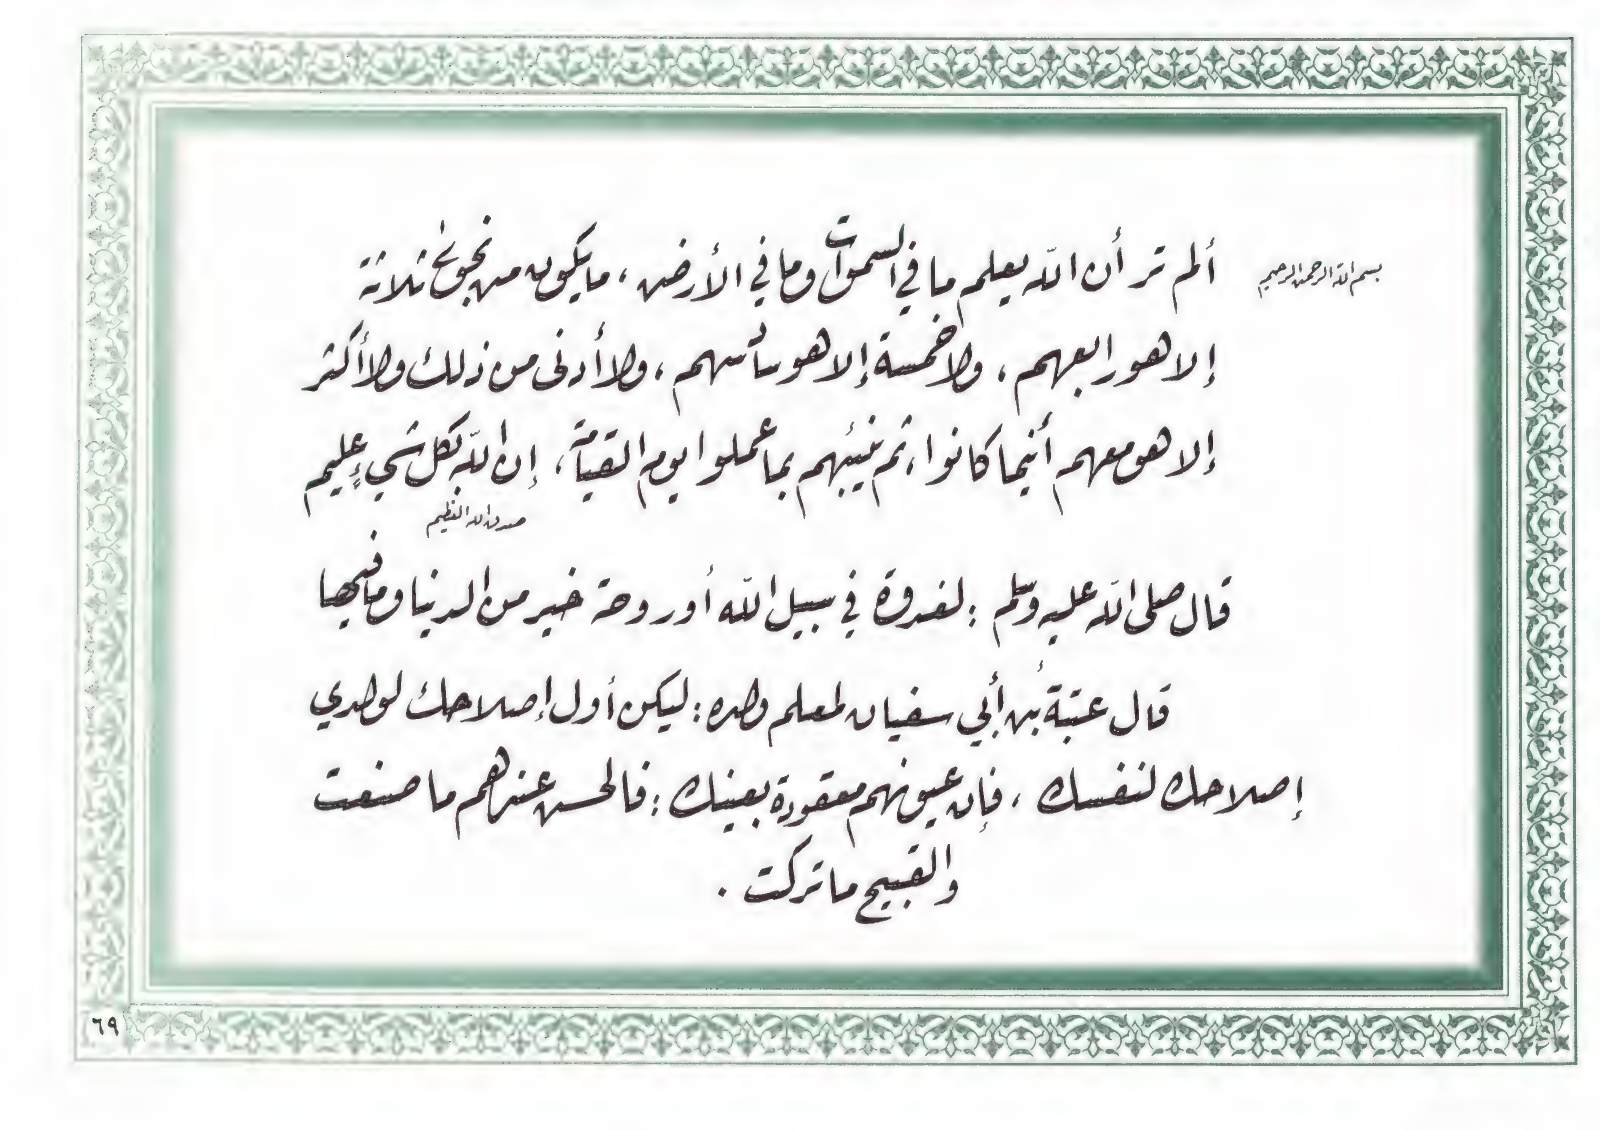 بسم الله الرحمن الرحيم
ألم تر أن الله يعلم ما في السموات وما في الأرض ، ما يكون من نجوى ثلاثة
إلا هو رابعهم ، ولا خمسة إلا هو سادسهم ، ولا أدنى من ذلك ولا أكثر
إلا هو معهم أينما كانوا ، ثم ينبئهم بما عملوا يوم القيامة ، إن الله بكل شيء عليم
صدق الله العظيم
قال صلى الله عليه وسلم : لغدوة في سبيل الله أو روحة خير من الدنيا وما فيها
قال عتبة بن أبي سفيان لمعلم ولده : ليكن أول إصلاحك لولدي
إصلاحك لنفسك ، فإن عيونهم معقودة بعينك : فالحسن عندهم ما صنعت
والقبيح ما تركت .
٦٩